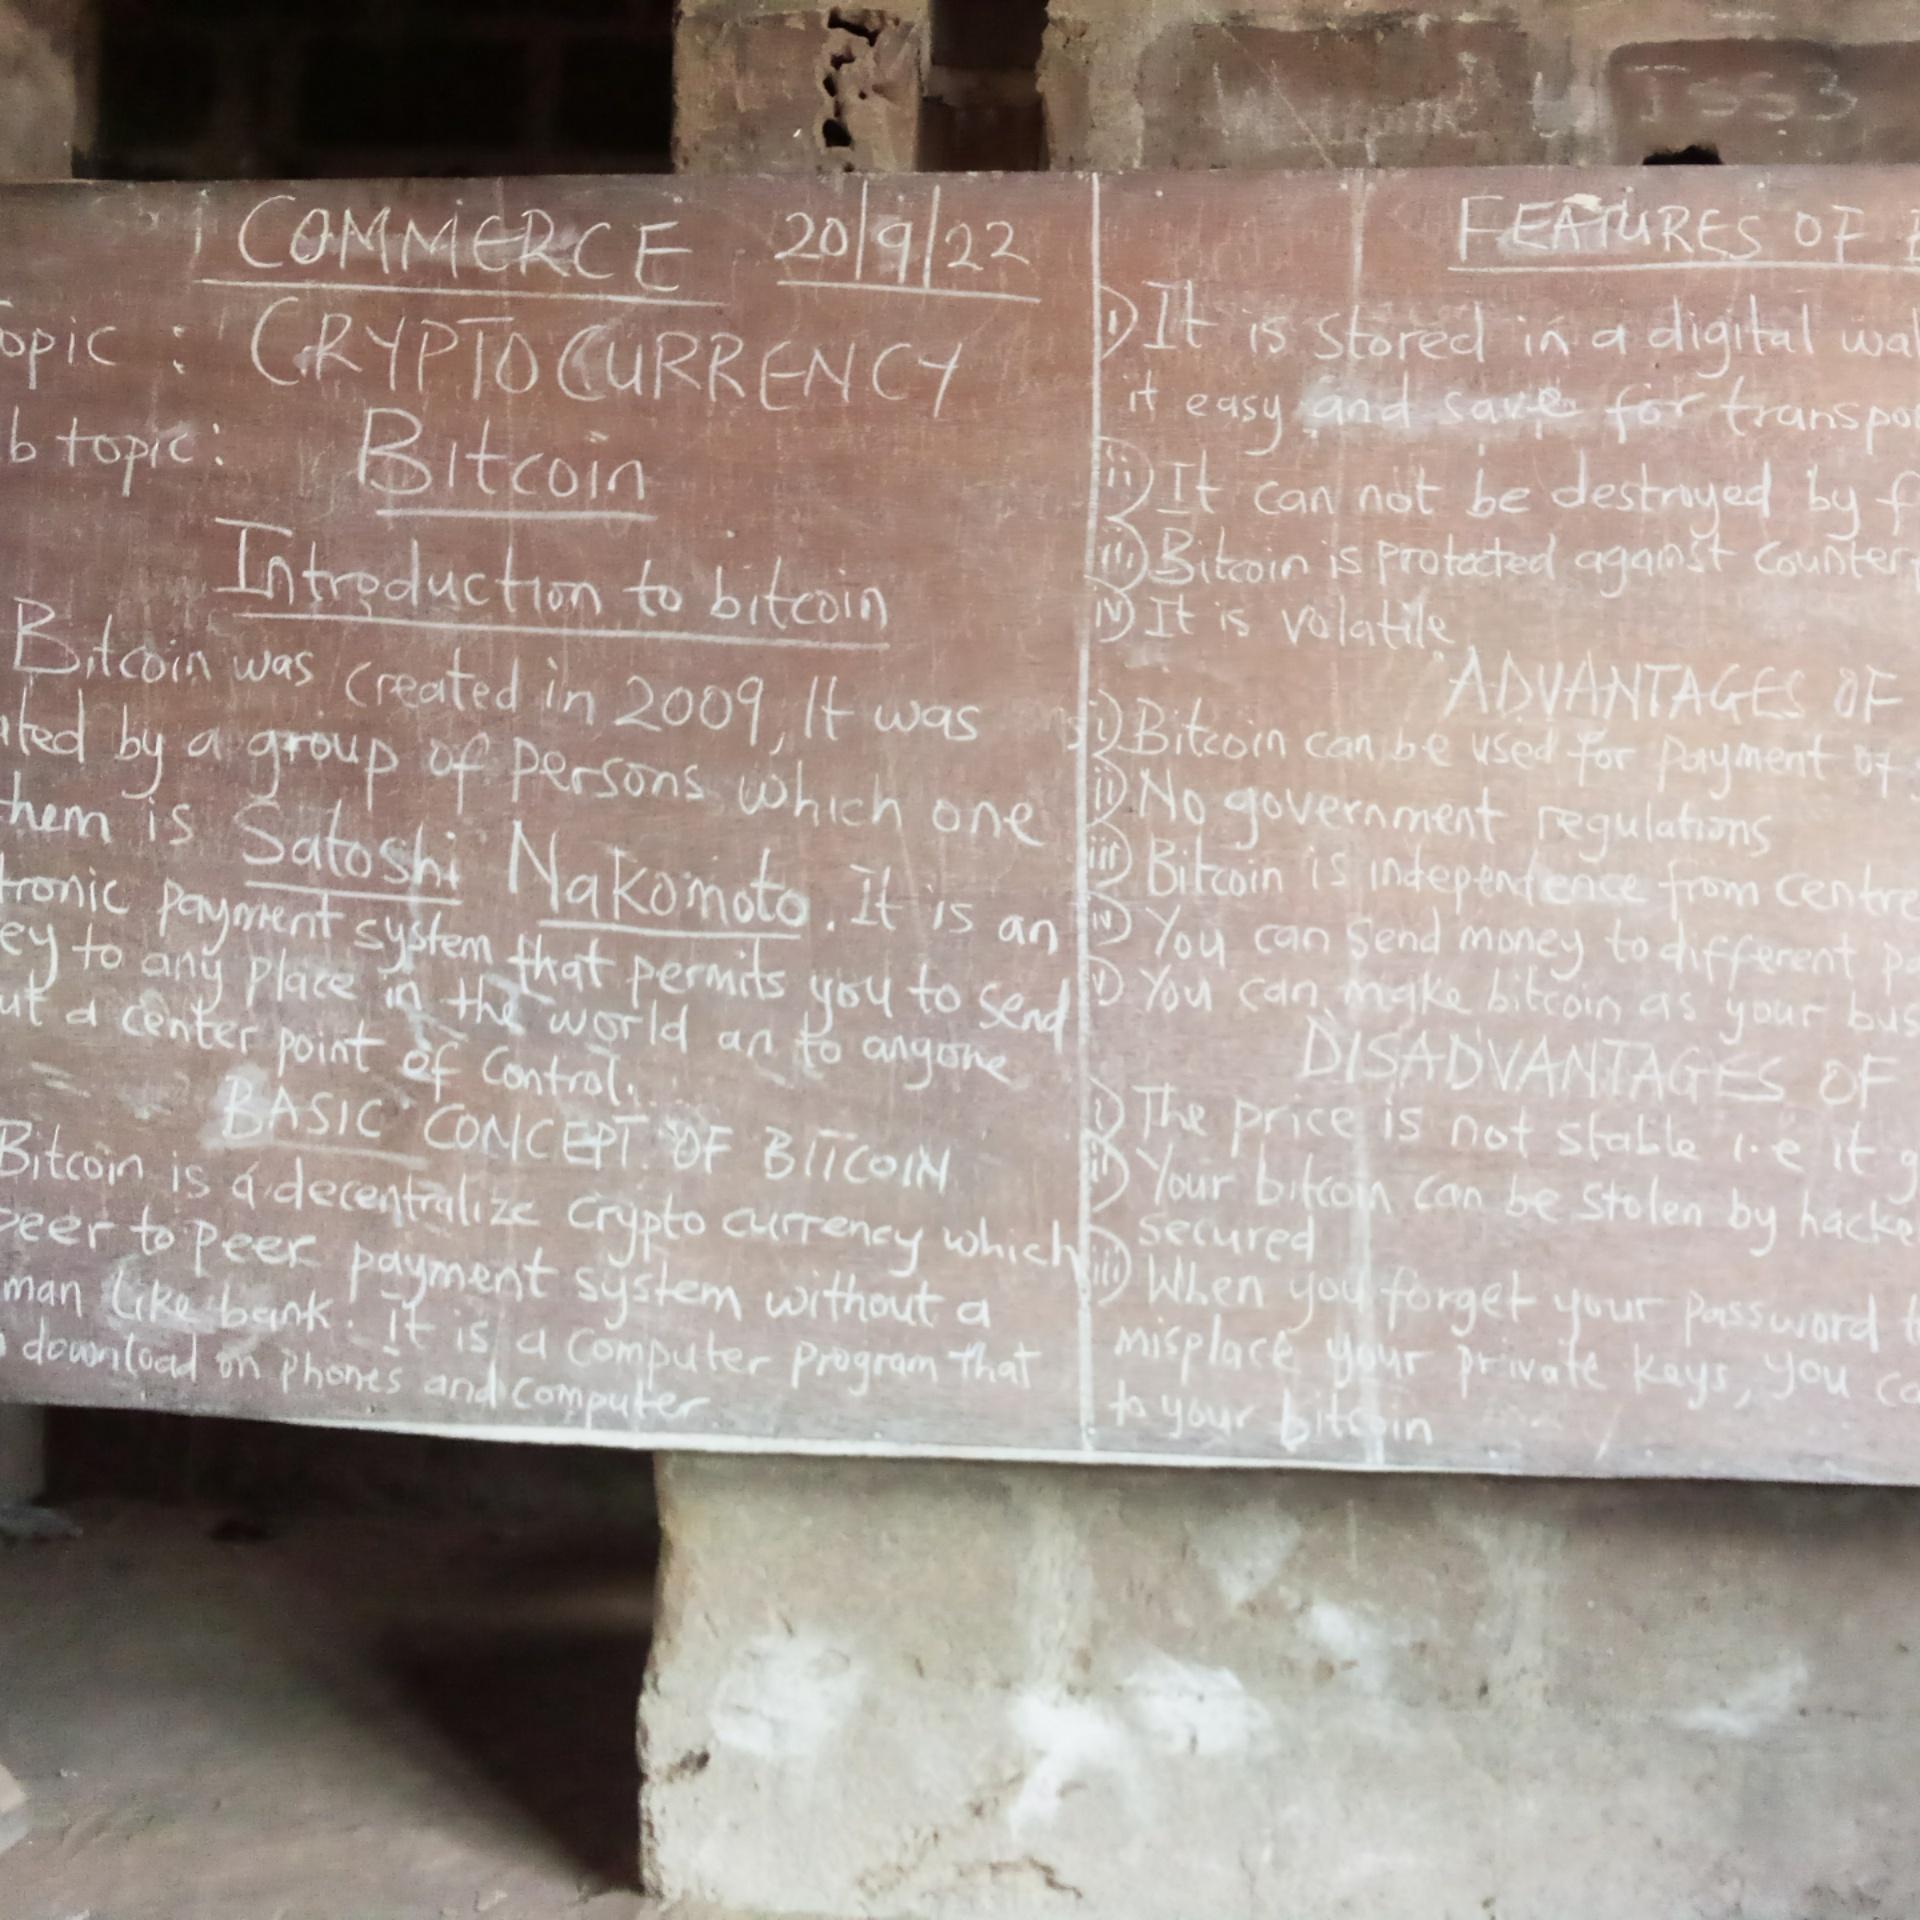 ISS3
COMMERCE 20/9/22
opic : CRYPTOCURRENCY
b topic: Bitcoin
Introduction to bitcoin
Bitcoin was created in 2009, It was
ated by a group of persons which one
them is Satoshi Nakomoto. It is an
tronic payment system that permits you to send
ey to any place in the world an to anyone
ut a center point of control.
BASIC CONCEPT OF BITCOIN
Bitcoin is a decentralize crypto currency which
peer to peer payment system without a
man like bank. It is a computer program that
download on phones and computer
FEATURES OF
i) It is stored in a digital wal
it easy and save for transpo
ii) It can not be destroyed by f
iii) Bitcoin is protected against counter
iv) It is volatile
ADVANTAGES OF
i) Bitcoin can be used for payment of
ii) No government regulations
iii) Bitcoin is independence from centre
iv) You can send money to different pa
v) You can make bitcoin as your bus
DISADVANTAGES OF
i) The price is not stable i.e it g
ii) Your bitcoin can be stolen by hacke
secured
iii) When you forget your password
misplace your private keys, you ca
to your bitcoin